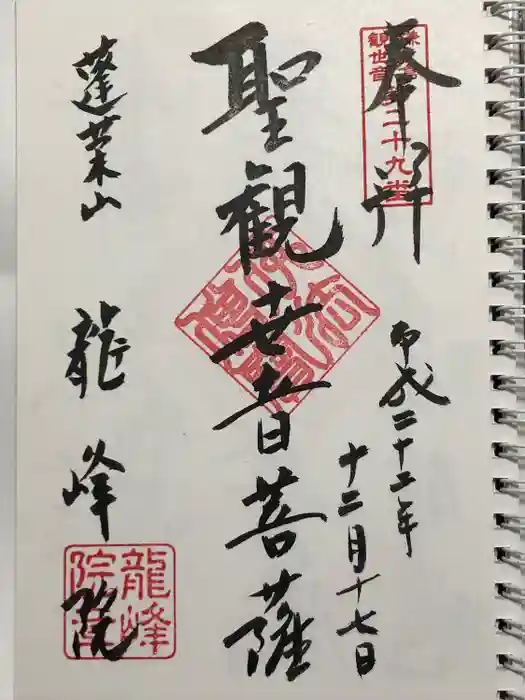 奉拝
観世音
第二十九
平成二十二年
十二月十七日
聖観世音菩薩
蓬莱山
龍峰院
龍峰
院